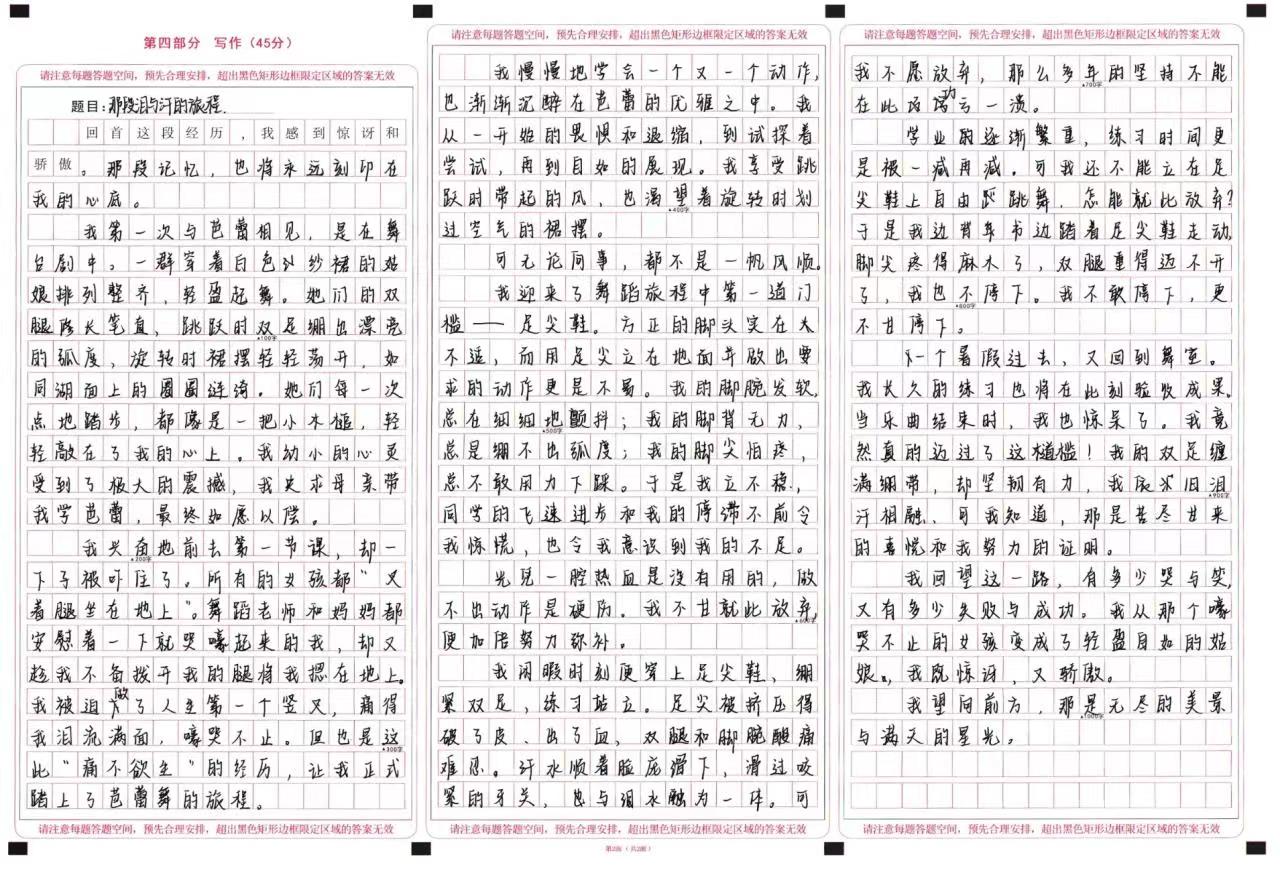 第四部分 写作（45分）
请注意每题答题空间，预先合理安排，超出黑色矩形边框限定区域的答案无效
题目：那段泪与汗的旅程.
回首这段经历，我感到惊讶和
骄傲。那段记忆，也将永远刻印在
我的心底。
我第一次与芭蕾相见，是在舞
台剧中。一群穿着白色纱裙的姑
娘排列整齐，轻盈起舞。她们的双
腿修长笔直，跳跃时双足绷出漂亮
▲100字
的弧度，旋转时裙摆轻轻荡开，如
同湖面上的圈圈涟漪。她们每一次
点地踏步，都像是一把小木槌，轻
轻敲在了我的心上。我幼小的心灵
受到了极大的震撼，我央求母亲带
我学芭蕾，最终如愿以偿。
我兴奋地前去第一节课，却一
▲200字
下子被吓住了。所有的女孩都“叉
着腿坐在地上”。舞蹈老师和妈妈都
安慰着一下就哭嚎起来的我，却又
趁我不备拨开我的腿将我摁在地上。
我被迫做了人生第一个竖叉，痛得
我泪流满面，嚎哭不止。但也是这
▲300字
此“痛不欲生”的经历，让我正式
踏上了芭蕾舞的旅程。
请注意每题答题空间，预先合理安排，超出黑色矩形边框限定区域的答案无效
请注意每题答题空间，预先合理安排，超出黑色矩形边框限定区域的答案无效
我慢慢地学会一个又一个动作，
也渐渐沉醉在芭蕾的优雅之中。我
从一开始的畏惧和退缩，到试探着
尝试，再到自如的展现。我享受跳
跃时带起的风，也渴望着旋转时划
▲400字
过空气的裙摆。
可无论何事，都不是一帆风顺。
我迎来了舞蹈旅程中第一道门
槛——足尖鞋。方正的脚头实在太
不适，而用足尖立在地面并做出要
求的动作更是不易。我的脚腕发软，
总在细细地颤抖；我的脚背无力，
▲500字
总是绷不出弧度；我的脚尖怕疼，
总不敢用力下踩。于是我立不稳，
同学的飞速进步和我的停滞不前令
我惊慌，也令我意识到我的不足。
光凭一腔热血是没有用的，做
不出动作是硬伤。我不甘就此放弃，
▲600字
便加倍努力弥补。
我闲暇时刻便穿上足尖鞋，绷
紧双足，练习站立。足尖被挤压得
破了皮、出了血，双腿和脚腕酸痛
难忍。汗水顺着脸庞滑下，滑过咬
紧的牙关，也与泪水融为一体。可
请注意每题答题空间，预先合理安排，超出黑色矩形边框限定区域的答案无效
第2面（共2面）
请注意每题答题空间，预先合理安排，超出黑色矩形边框限定区域的答案无效
我不愿放弃，那么多年的坚持不能
▲700字
在此功亏一溃。
学业的逐渐繁重，练习时间更
是被一减再减。可我还不能立在足
尖鞋上自由跳舞，怎能就此放弃？
于是我边背单书边踏着足尖鞋走动，
脚尖疼得麻木了，双腿重得迈不开
了，我也不停下。我不敢停下，更
▲800字
不甘停下。
下一个暑假过去，又回到舞室。
我长久的练习也将在此刻验收成果。
当乐曲结束时，我也惊呆了。我竟
然真的迈过了这道槛！我的双足缠
满绷带，却坚韧有力，我依求旧泪
▲900字
汗相融、可我知道，那是苦尽甘来
的喜悦和我努力的证明。
我回望这一路，有多少哭与笑，
又有多少失败与成功。我从那个嚎
哭不止的女孩变成了轻盈自如的姑
娘，我既惊讶，又骄傲。
我望向前方，那是无尽的美景
▲1000字
与满天的星光。
请注意每题答题空间，预先合理安排，超出黑色矩形边框限定区域的答案无效